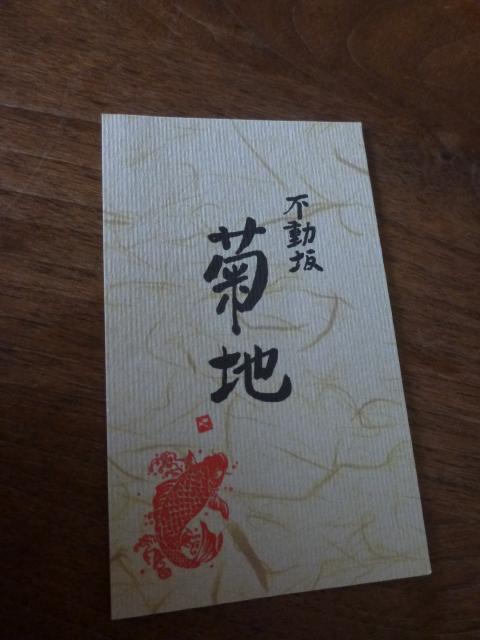 不動坂
菊地